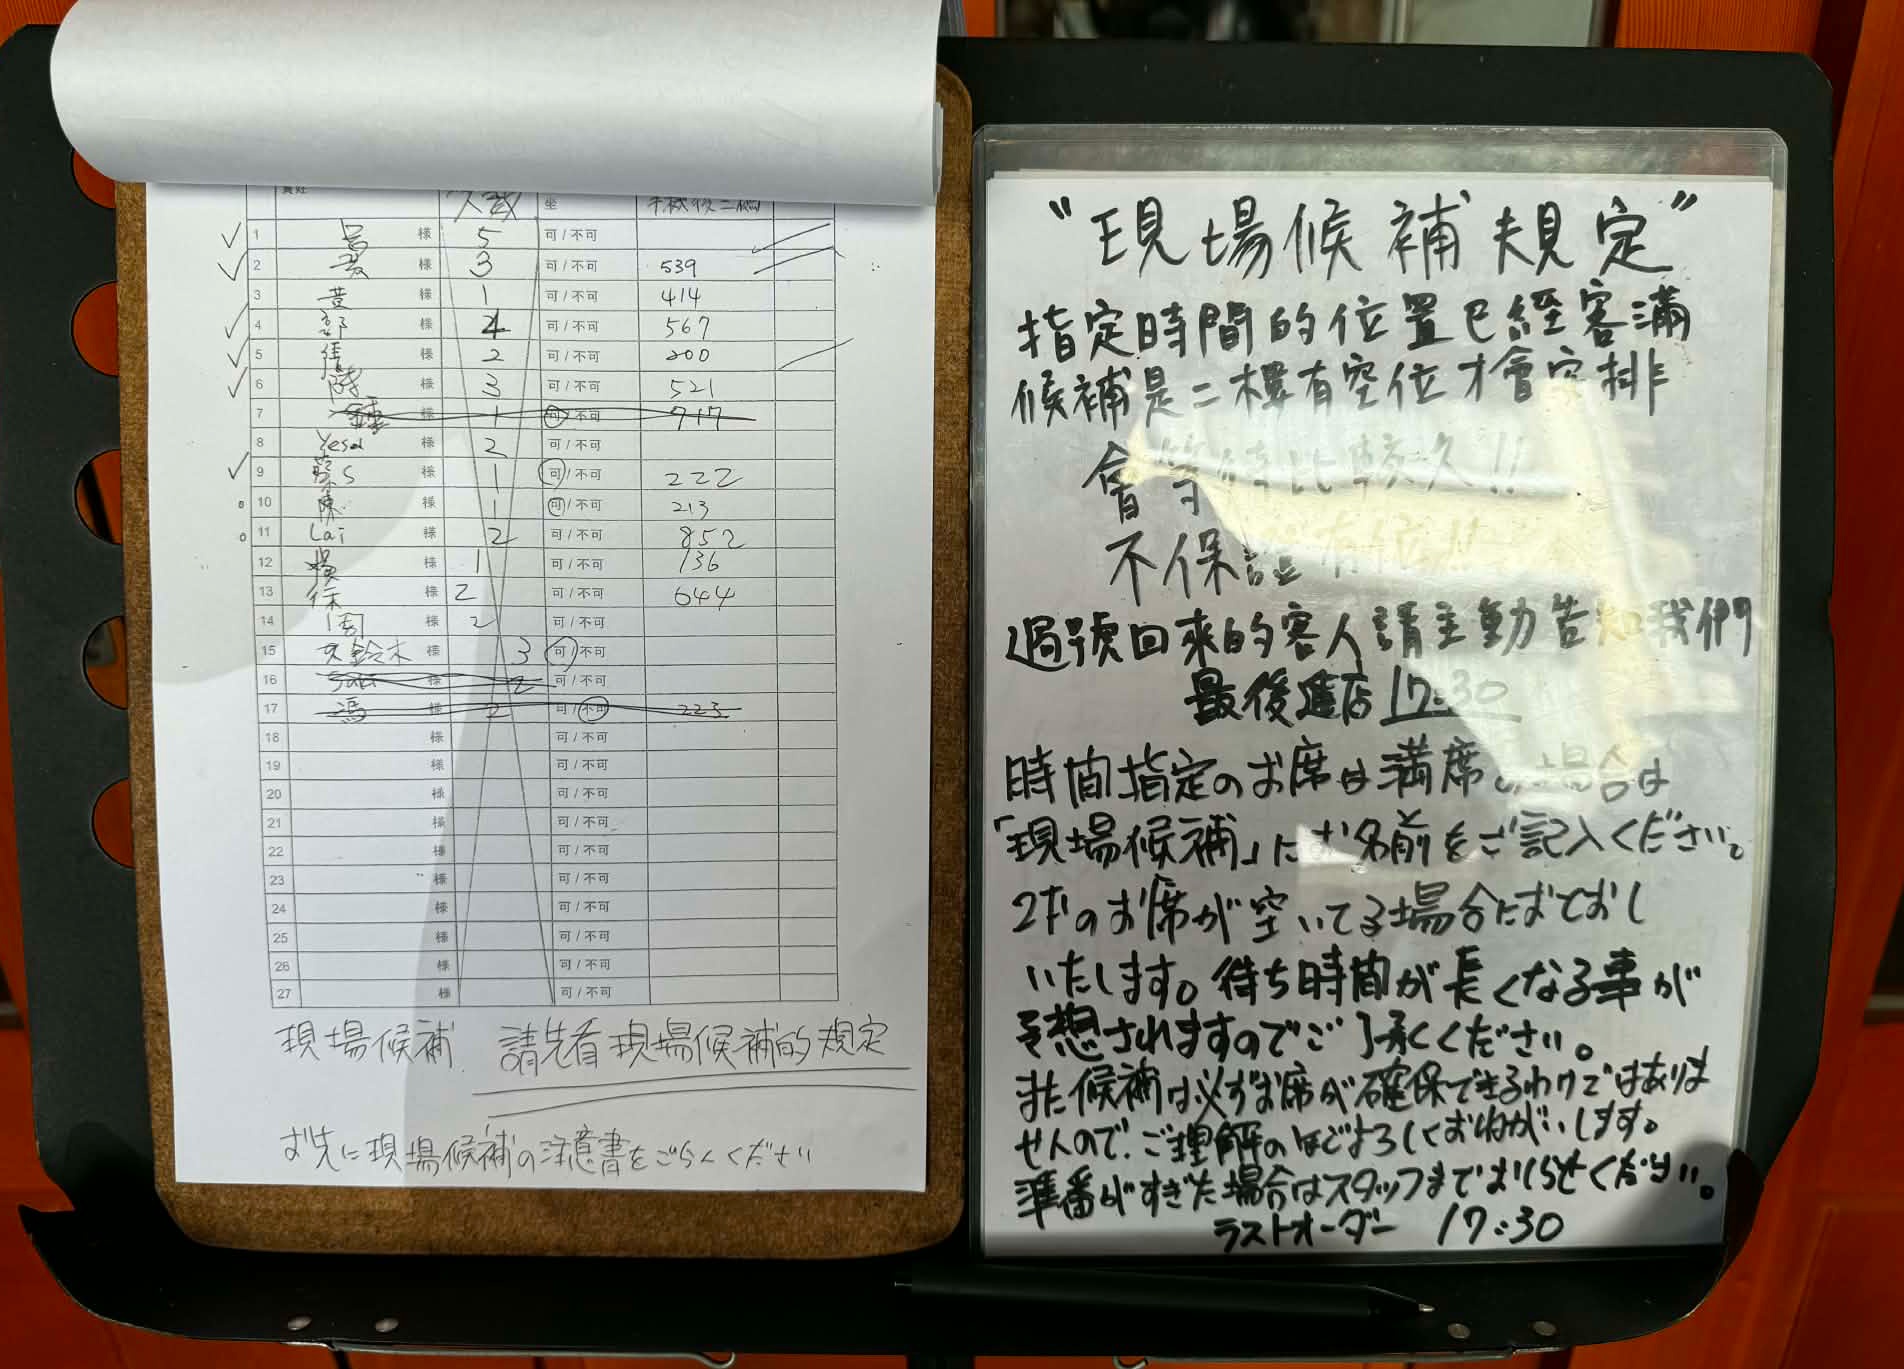 貴姓 人數 坐 手機後三碼
1 吳 樣 5 可/不可
2 樣 3 可/不可 539
3 黃 樣 1 可/不可 414
4 鄒 樣 4 可/不可 567
5 樣 2 可/不可 200
6 陳 樣 3 可/不可 521
7 鍾 樣 1 可/不可 717
8 樣 2 可/不可
9 蔡S 1 可/不可 222
10 陳 樣 1 可/不可 213
11 Lai 樣 2 可/不可 852
12 楊 樣 1 可/不可 136
13 徐 樣 2 可/不可 644
14 周 樣 2 可/不可
15 鈴木 樣 3 可/不可
16 樣 2 可/不可
17 馮 樣 2 可/不可 223
18 樣 可/不可
19 樣 可/不可
20 樣 可/不可
21 樣 可/不可
22 樣 可/不可
23 樣 可/不可
24 樣 可/不可
25 樣 可/不可
26 樣 可/不可
27 樣 可/不可
現場候補 請先看現場候補的規定
お先に現場候補の注意書をごらんください
"現場候補規定"
指定時間的位置已經客滿
候補是二樓有空位才會安排
會等待比較久!!
不保證有位!!
過號回來的客人請主動告知我們
最後進店17:30
時間指定のお席は満席の場合は
「現場候補」にお名前をご記入ください。
2Fのお席が空いてる場合におとおし
いたします。待ち時間が長くなる事が
予想されますのでご了承ください。
また候補は必ずお席が確保できるわけではありま
せんので、ご理解のほどよろしくおねがいします。
準番がすぎた場合はスタッフまでおしらせください。
ラストオーダー 17:30